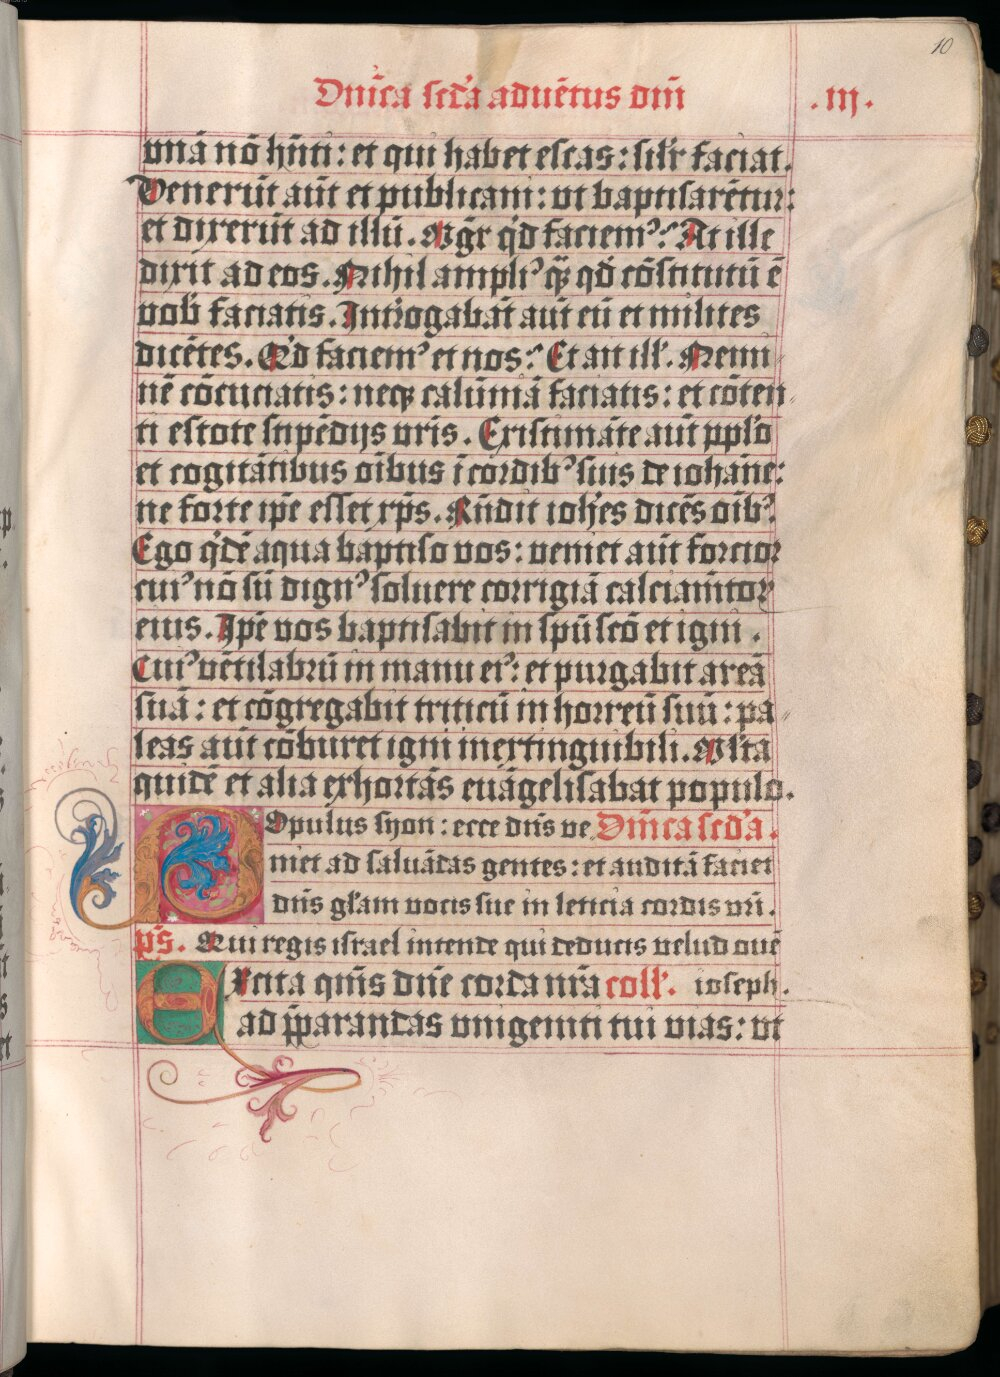 10
Dn̄ica sec̄da advētus dn̄i .iij.
vnā nō hn̄ti: et qui habet escas: silr̄ faciat.
Venerūt aūt et publicani: vt baptisarētur:
et dixerūt ad illū. Mgr̄ qͥd faciemꝰ? At ille
dixit ad eos. Nihil ampliꝰ qͣ̄ꝫ qd̄ cōstitutū ē
vob̄ faciatis. Intr̄ogabāt aūt eū et milites
dicētes. Qͥd faciemꝰ et nos? Et ait ill̓. Nemi⸗
nē cōcuciatis: neqꝫ calūniā faciatis: et cōten⸗
ti estote stipēdijs vr̄is. Existimāte aūt ppl̓o
et cogitātibus oībus ī cordibꝰ suis de iohāne:
ne forte ip̄e esset xp̄s. Rn̄dit ioh̄es dicēs oībꝰ.
Ego qͥdē aqua baptiso vos: veniet aūt forcior
cuiꝰ nō sū dignꝰ soluere corrigiā calciam̄toꝝ
eius. Ip̄e vos baptisabit in sp̄u scō et igni .
Cuiꝰ vētilabrū in manu eiꝰ: et purgabit areā
suā: et cōgregabit triticū in horreū suū: pa⸗
leas aūt cōburet igni inextinguibili. Ml̓ta
quidē et alia exhortās euāgelisabat populo.
Populus syon: ecce dn̄s ve Dn̄ica sec̄da.
niet ad saluādas gentes: et auditā faciet
dn̄s gl̓am vocis sue in leticia cordis vr̄i.
ps̄. Qui regis israel intende qui deducis velud ouē
Excita qm̄s dn̄e corda nr̄a coll̓. ioseph.
ad p̄parandas vnigeniti tui vias: vt